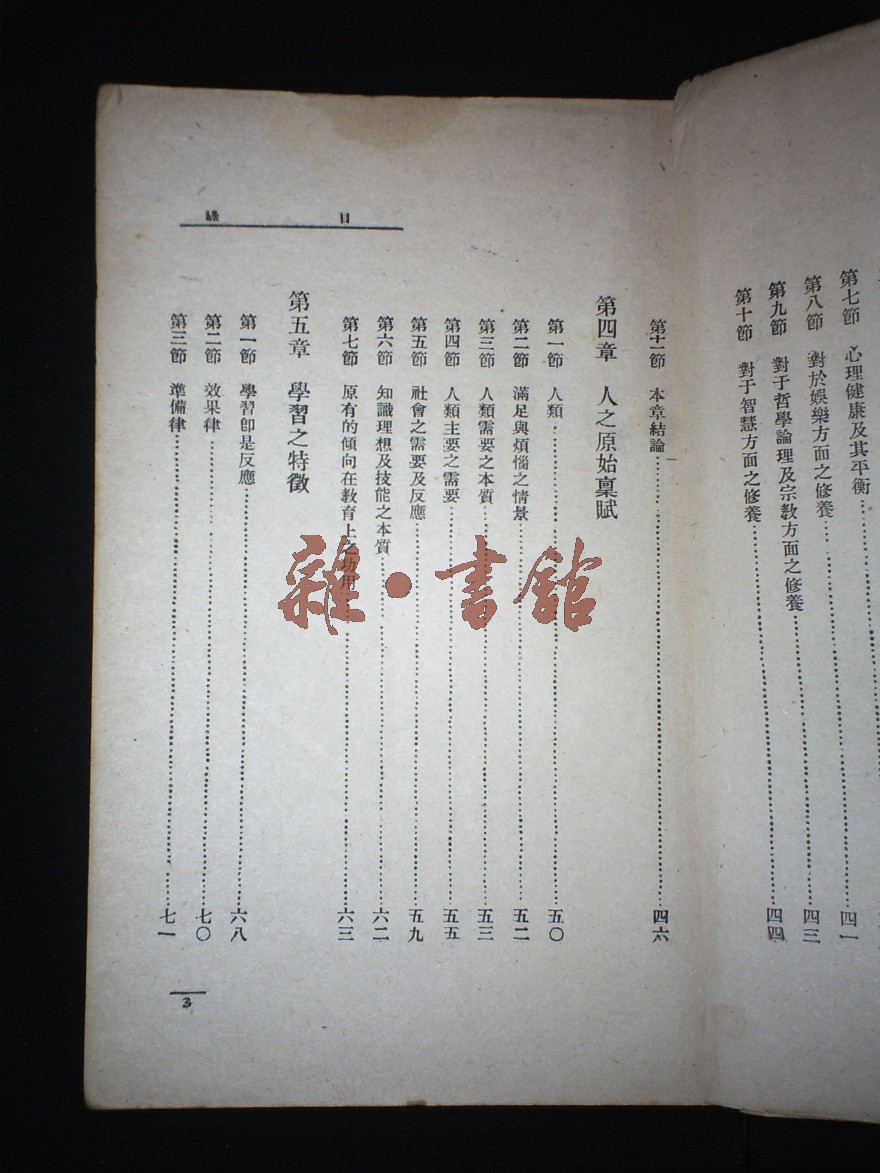 第七節　心理健康及其平衡……四一
第八節　對於娛樂方面之修養……四三
第九節　對于哲學論理及宗教方面之修養……四四
第十節　對于智慧方面之修養
目錄
第十一節　本章結論……四六
第四章　人之原始稟賦
第一節　人類……五〇
第二節　滿足與煩惱之情景……五二
第三節　人類需要之本質……五三
第四節　人類主要之需要……五五
第五節　社會之需要及反應……五九
第六節　知識理想及技能之本質……六二
第七節　原有的傾向在教育上之功用……六三
第五章　學習之特徵
第一節　學習卽是反應……六八
第二節　效果律……七〇
第三節　準備律……七一
3
雜·書館